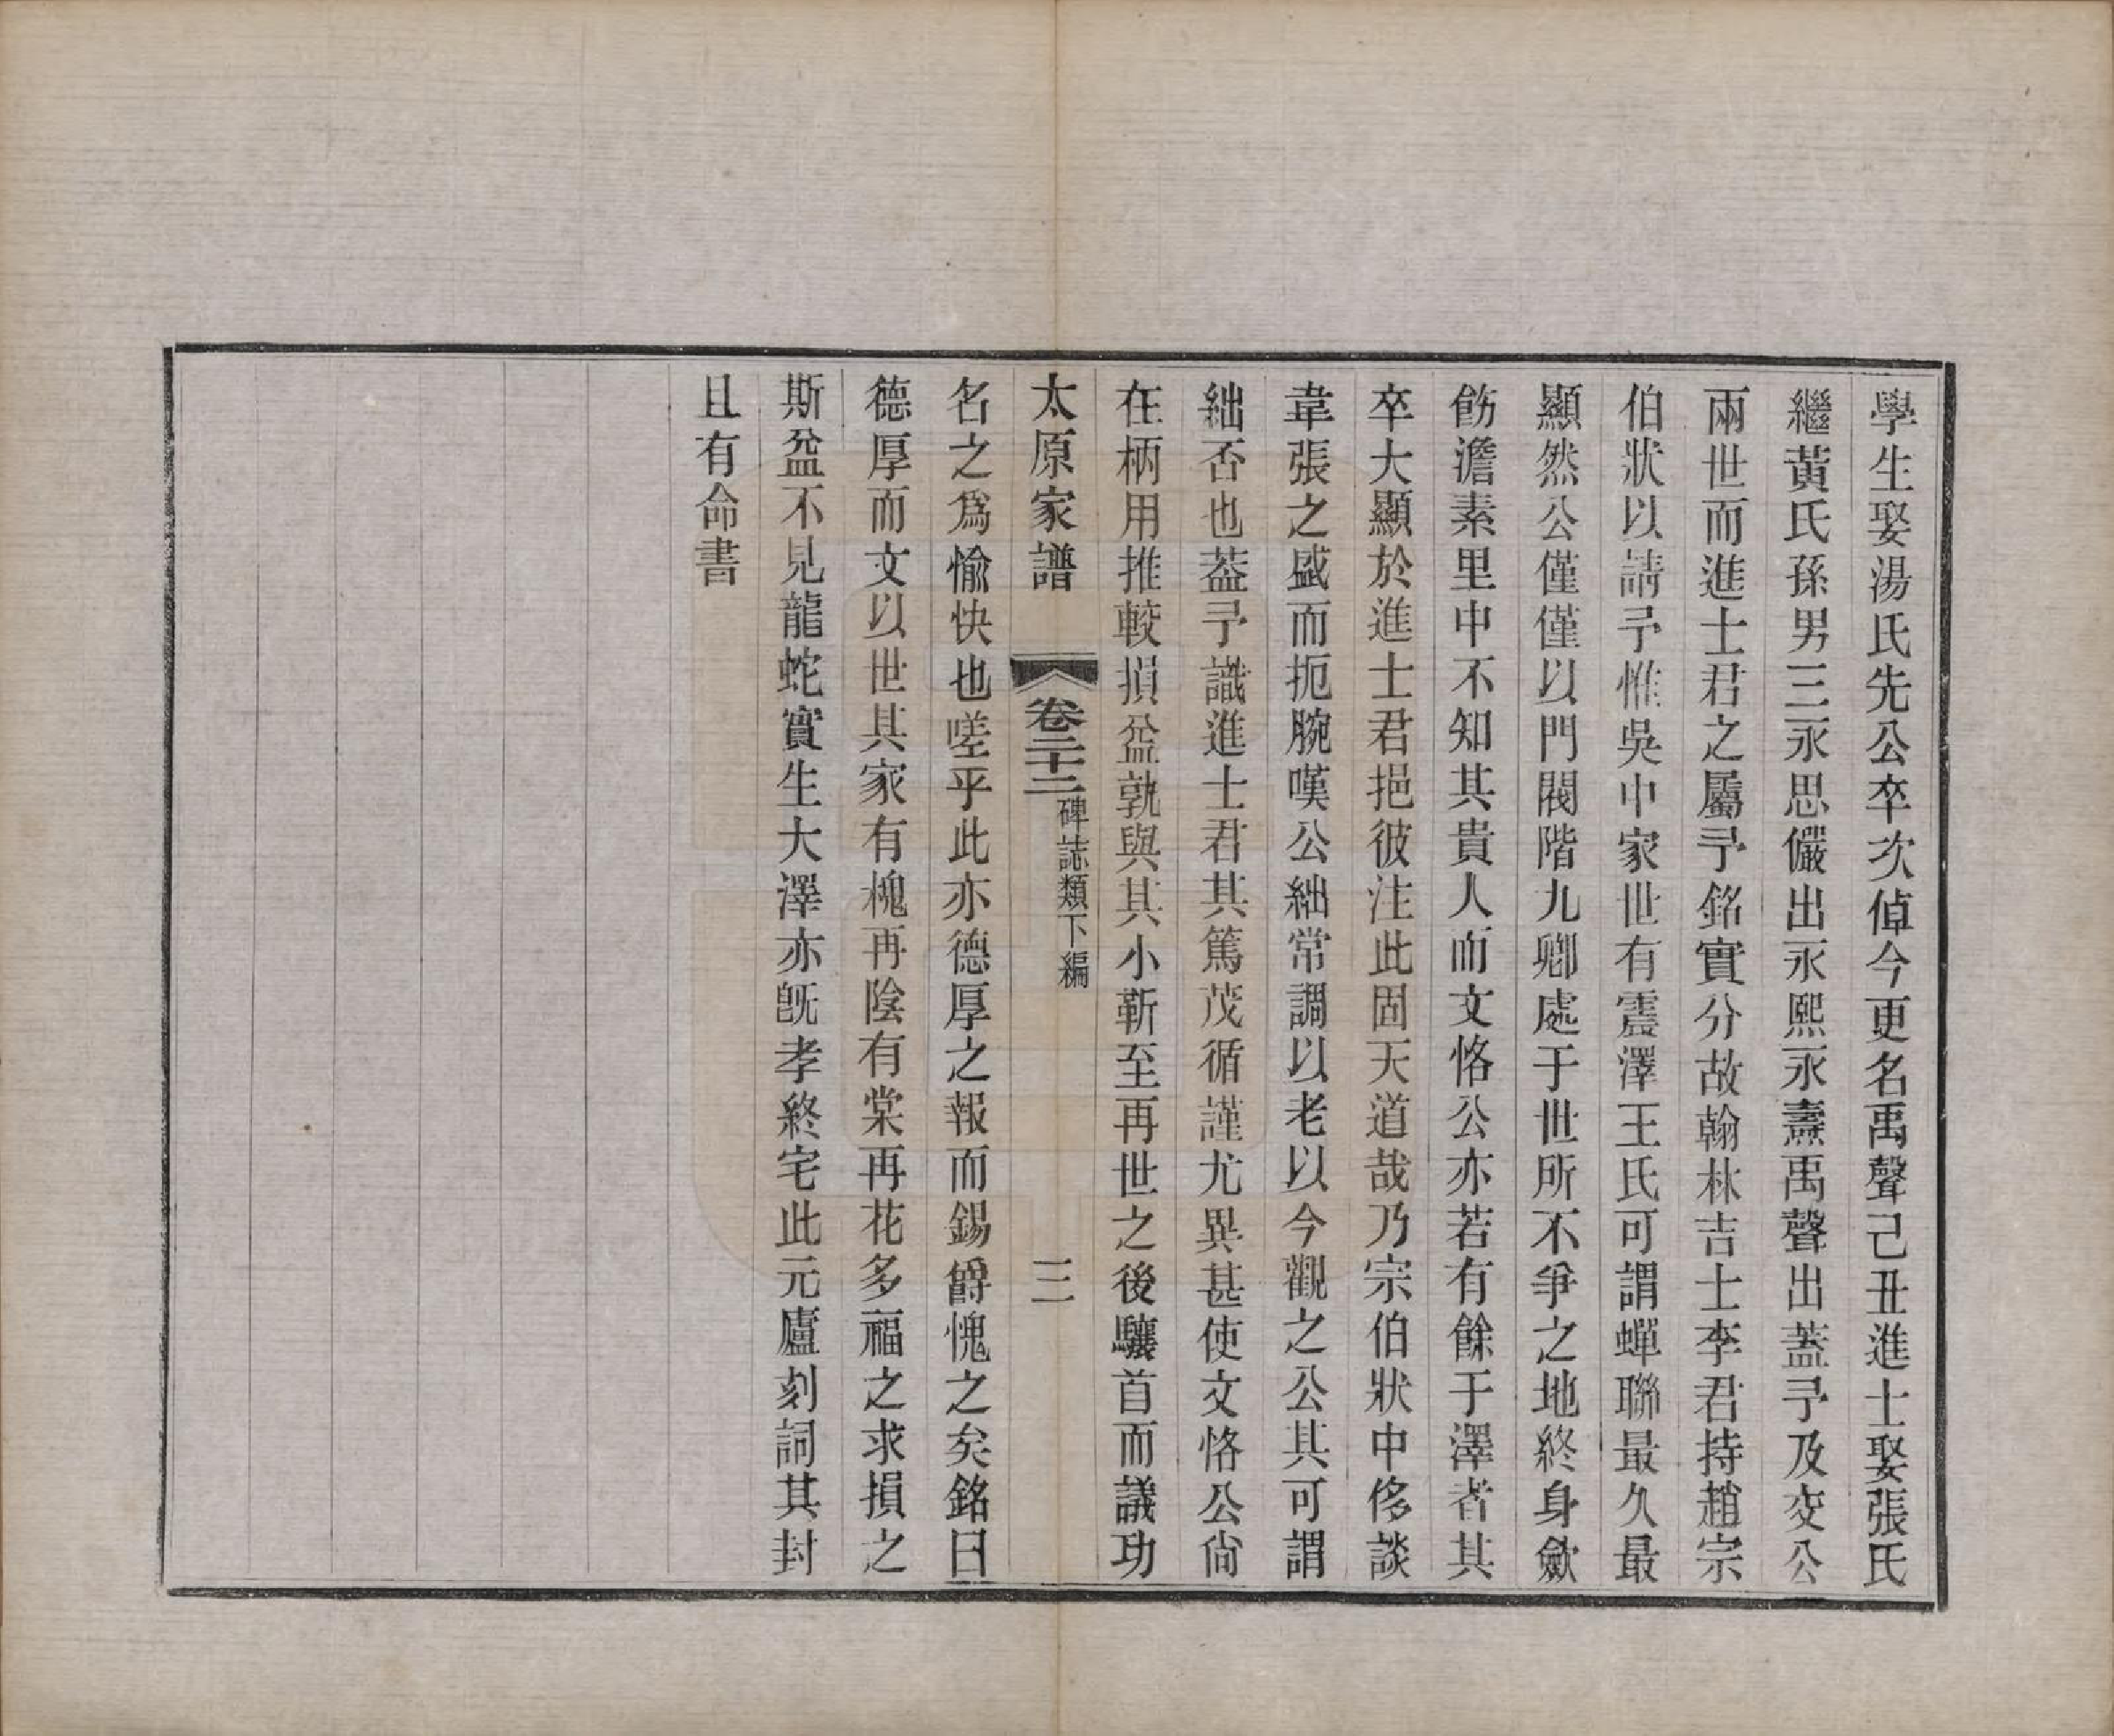 學生娶湯氏先公卒次倬今更名禹聲己丑進士娶張氏
繼黃氏孫男三永思儼出永熙永壽禹聲出蓋予及交公
兩世而進士君之屬予銘實分故翰林吉士李君持趙宗
伯狀以請予惟吳中家世有震澤王氏可謂蟬聯最久最
顯然公僅僅以門閥階九卿處于世所不爭之地終身歛
飭澹素里中不知其貴人而文恪公亦若有餘于澤者其
卒大顯於進士君挹彼注此固天道哉乃宗伯狀中侈談
韋張之盛而扼腕嘆公絀常調以老以今觀之公其可謂
絀否也葢予識進士君其篤茂循謹尤異甚使文恪公尙
在柄用推較損益孰與其小靳至再世之後驤首而議功
太原家譜 卷二十二 碑誌類下編 三
名之爲愉快也嗟乎此亦德厚之報而錫爵愧之矣銘曰
德厚而文以世其家有槐再陰有棠再花多福之求損之
斯益不見龍蛇實生大澤亦旣孝終宅此元廬刻詞其封
且有命書